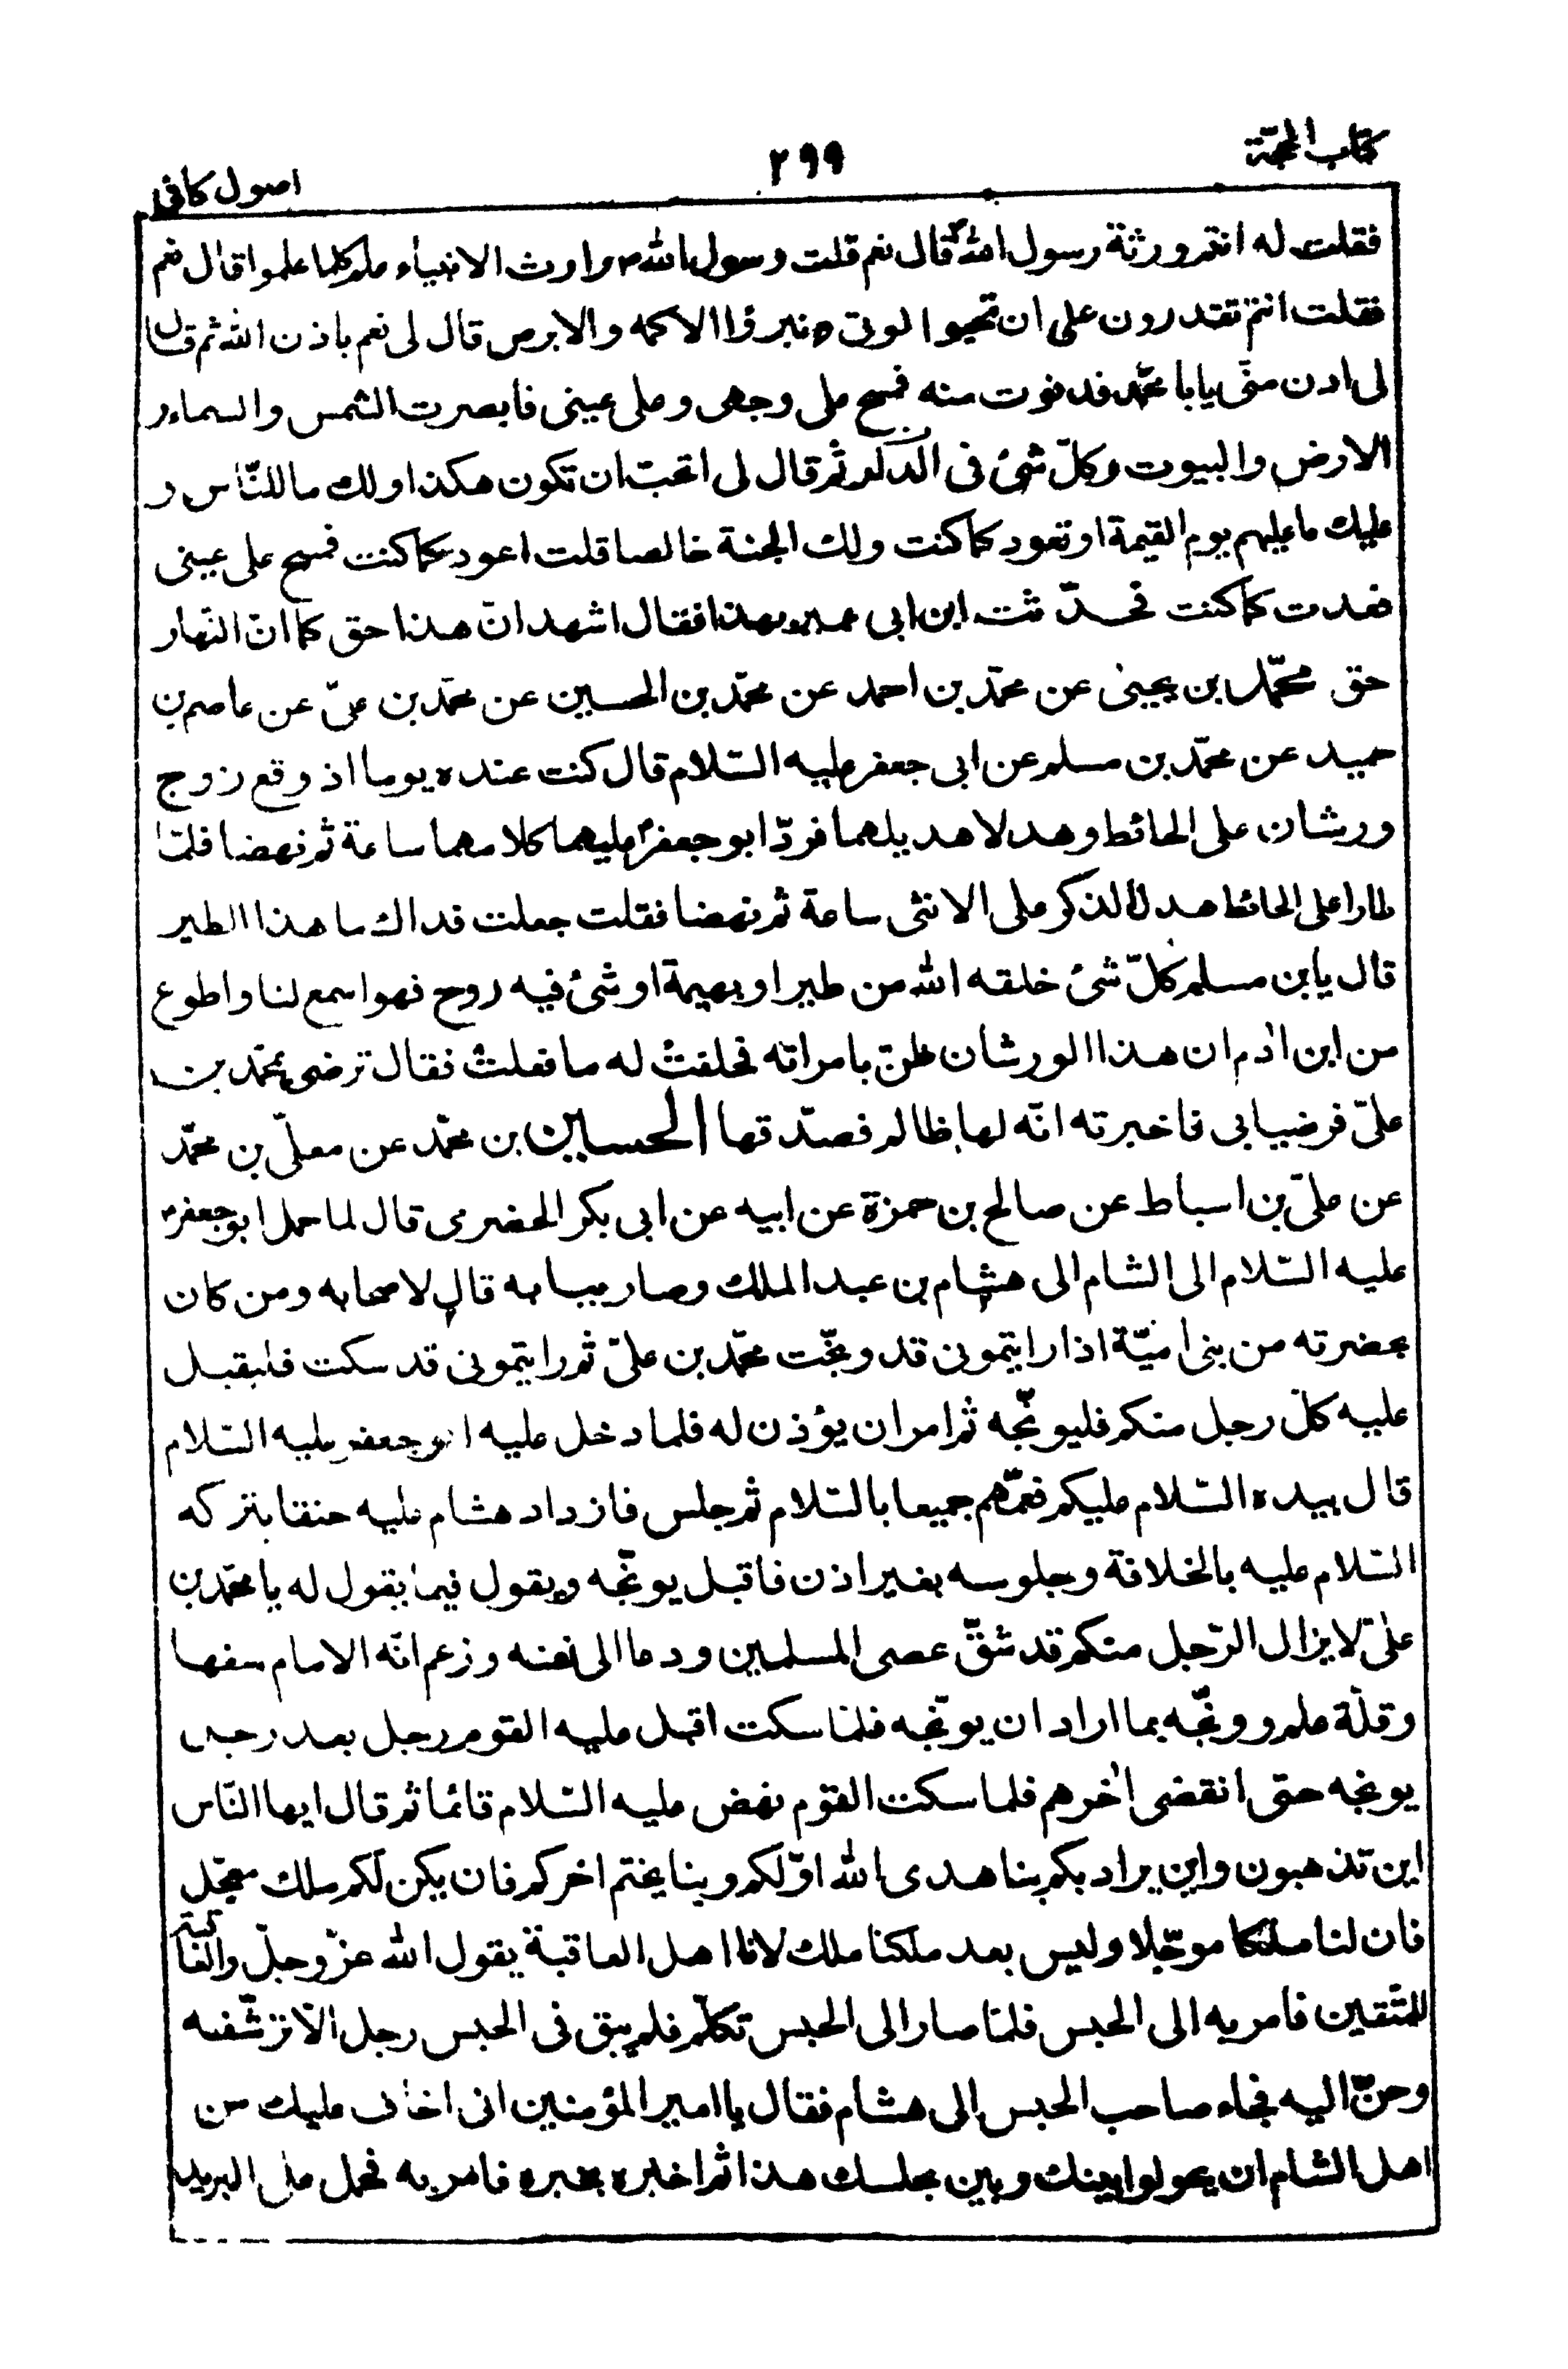 كتاب الحجّة
٢٩٩
اصول كافى
فقلت له انتم ورثة رسول اللهؐ قال نعم قلت رسول اللهؐ وارث الانبياء علم كلما علموا قال نعم
فقلت انتم تقدرون على ان تحيوا الموتى وتبرؤا الاكمه والابرص قال لى نعم باذن الله ثم قال
لى ادن منّى يابا محمّد فدنوت منه فمسح على وجهى وعلى عينى فابصرت الشمس والسماء و
الارض والبيوت وكلّ شئ فى البلد ثم قال لى اتحبّ ان تكون هكذا ولك ما للنّاس و
عليك ما عليهم يوم القيمة او تعود كما كنت ولك الجنة خالصا قلت اعود كما كنت فمسح على عينى
فعدت كما كنت فحدّثت ابن ابى عمير بهذا فقال اشهد انّ هذا حق كما انّ النّهار
حق محمّد بن يحيى عن محمّد بن احمد عن محمّد بن الحسين عن محمّد بن علىّ عن عاصم بن
حميد عن محمّد بن مسلم عن ابى جعفر عليه السّلام قال كنت عنده يوما اذ وقع زوج
ورشان على الحائط وهدلا هديلهما فردّ ابو جعفرؑ عليهما كلامهما ساعة ثم نهضا فلمّا
طارا على الحائط هدل الذكر على الانثى ساعة ثم نهضا فقلت جعلت فداك ما هذا الطير
قال يابن مسلم كلّ شئ خلقه الله من طير او بهيمة او شئ فيه روح فهو اسمع لنا واطوع
من ابن ادم ان هذا الورشان ظنّ بامراته فحلفت له ما فعلت فقال ترضى بمحمّد بن
علىّ فرضيا بى فاخبرته انّه لها ظالم فصدّقها الحسين بن محمّد عن معلّى بن محمّد
عن علىّ بن اسباط عن صالح بن حمزة عن ابيه عن ابى بكر الحضرمى قال لما حمل ابو جعفرؑ
عليه السّلام الى الشام الى هشام بن عبد الملك وصار ببابه قال لاصحابه ومن كان
بحضرته من بنى اميّة اذا رايتمونى قد وبّخت محمّد بن علىّ ثم رايتمونى قد سكت فليقبل
عليه كلّ رجل منكم فليوبّخه ثم امر ان يؤذن له فلما دخل عليه ابو جعفر عليه السّلام
قال بيده السّلام عليكم فعمّهم جميعا بالسّلام ثم جلس فازداد هشام عليه حنقا بتركه
السّلام عليه بالخلافة وجلوسه بغير اذن فاقبل يوبّخه ويقول فيما يقول له يا محمّد بن
علىّ لا يزال الرّجل منكم قد شقّ عصى المسلمين ودعا الى نفسه وزعم انّه الامام سفها
وقلّة علم ووبّخه بما اراد ان يوبّخه فلمّا سكت اقبل عليه القوم رجل بعد رجل
يوبخه حتى انقضى اخرهم فلما سكت القوم نهض عليه السّلام قائما ثم قال ايها النّاس
اين تذهبون واين يراد بكم بنا هدى الله اوّلكم وبنا يختم اخركم فان يكن لكم ملك معجّل
فان لنا ملكا موجّلا وليس بعد ملكنا ملك لانّا اهل العاقبة يقول الله عزّ وجلّ والعاقبة
للمتّقين فامر به الى الحبس فلمّا صار الى الحبس تكلّم فلم يبق فى الحبس رجل الّا ترشّفه
وحنّ اليه فجاء صاحب الحبس الى هشام فقال يا امير المؤمنين انى اخاف عليك من
اهل الشام ان يحولوا بينك وبين مجلسك هذا ثم اخبره بخبره فامر به فحمل على البريد